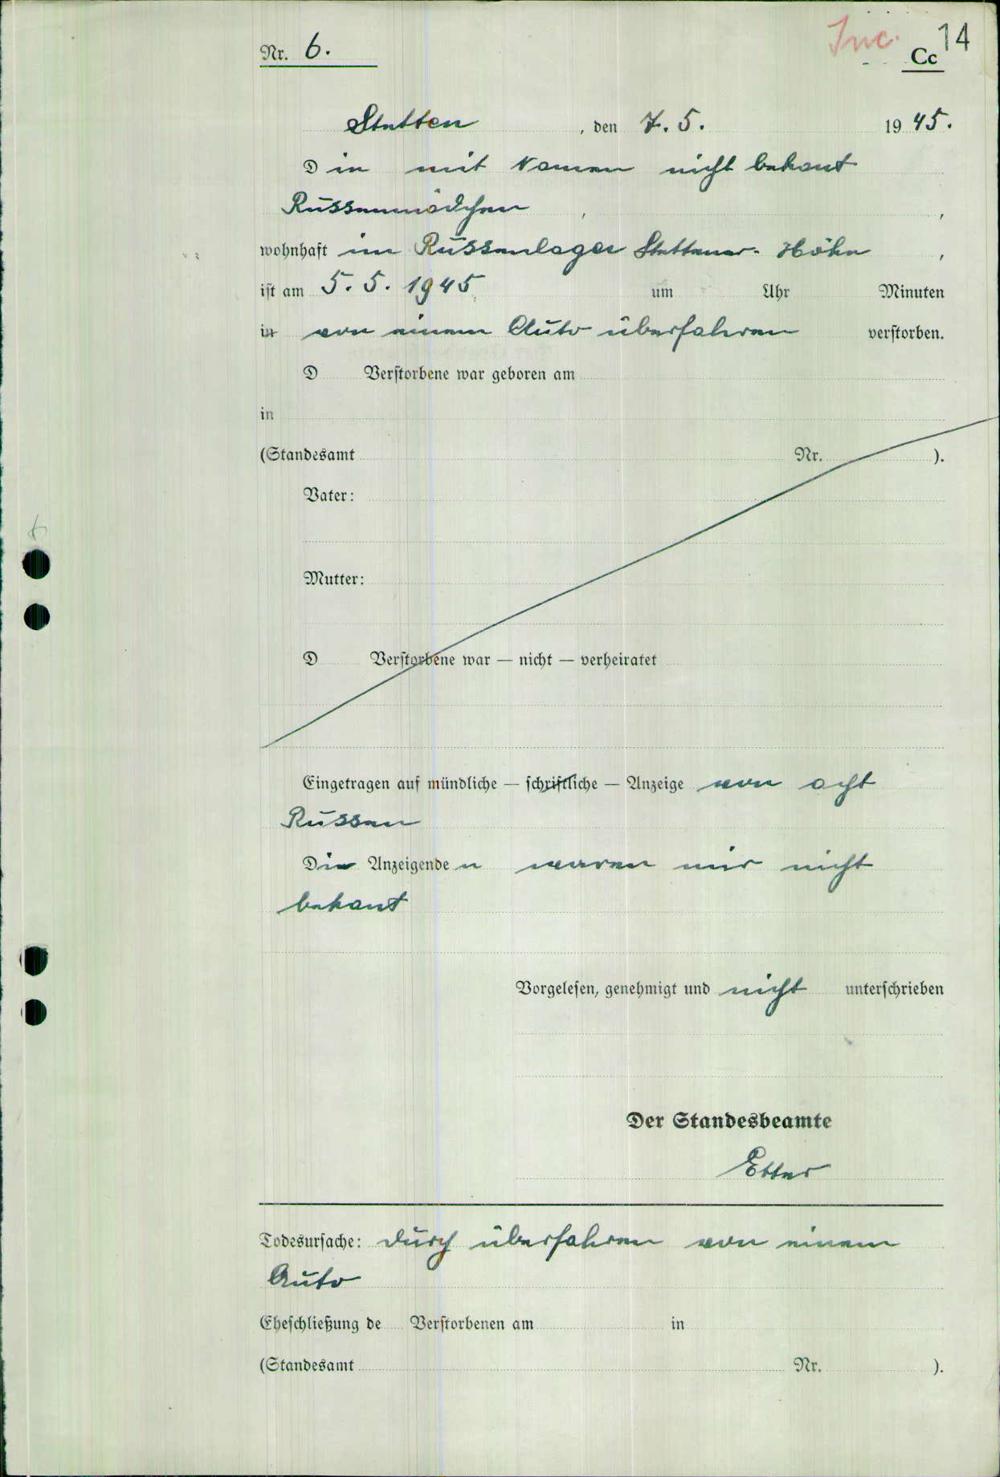 Nr. 6.
Inc. 14
Cc
Stetten, den 7. 5. 1945.
Die mit Namen nicht bekant
Russenmädchen,
wohnhaft im Russenlager Stettener-Höhe,
ist am 5. 5. 1945 um Uhr Minuten
in von einem Auto überfahren verstorben.
D Verstorbene war geboren am
in
(Standesamt Nr. ).
Vater:
Mutter:
D Verstorbene war — nicht — verheiratet
Eingetragen auf mündliche — schriftliche — Anzeige von acht
Russen
Die Anzeigenden waren mir nicht
bekant
Vorgelesen, genehmigt und nicht unterschrieben
Der Standesbeamte
Etter
Todesursache: durch überfahren von einem
Auto
Eheschließung de Verstorbenen am in
(Standesamt Nr. ).